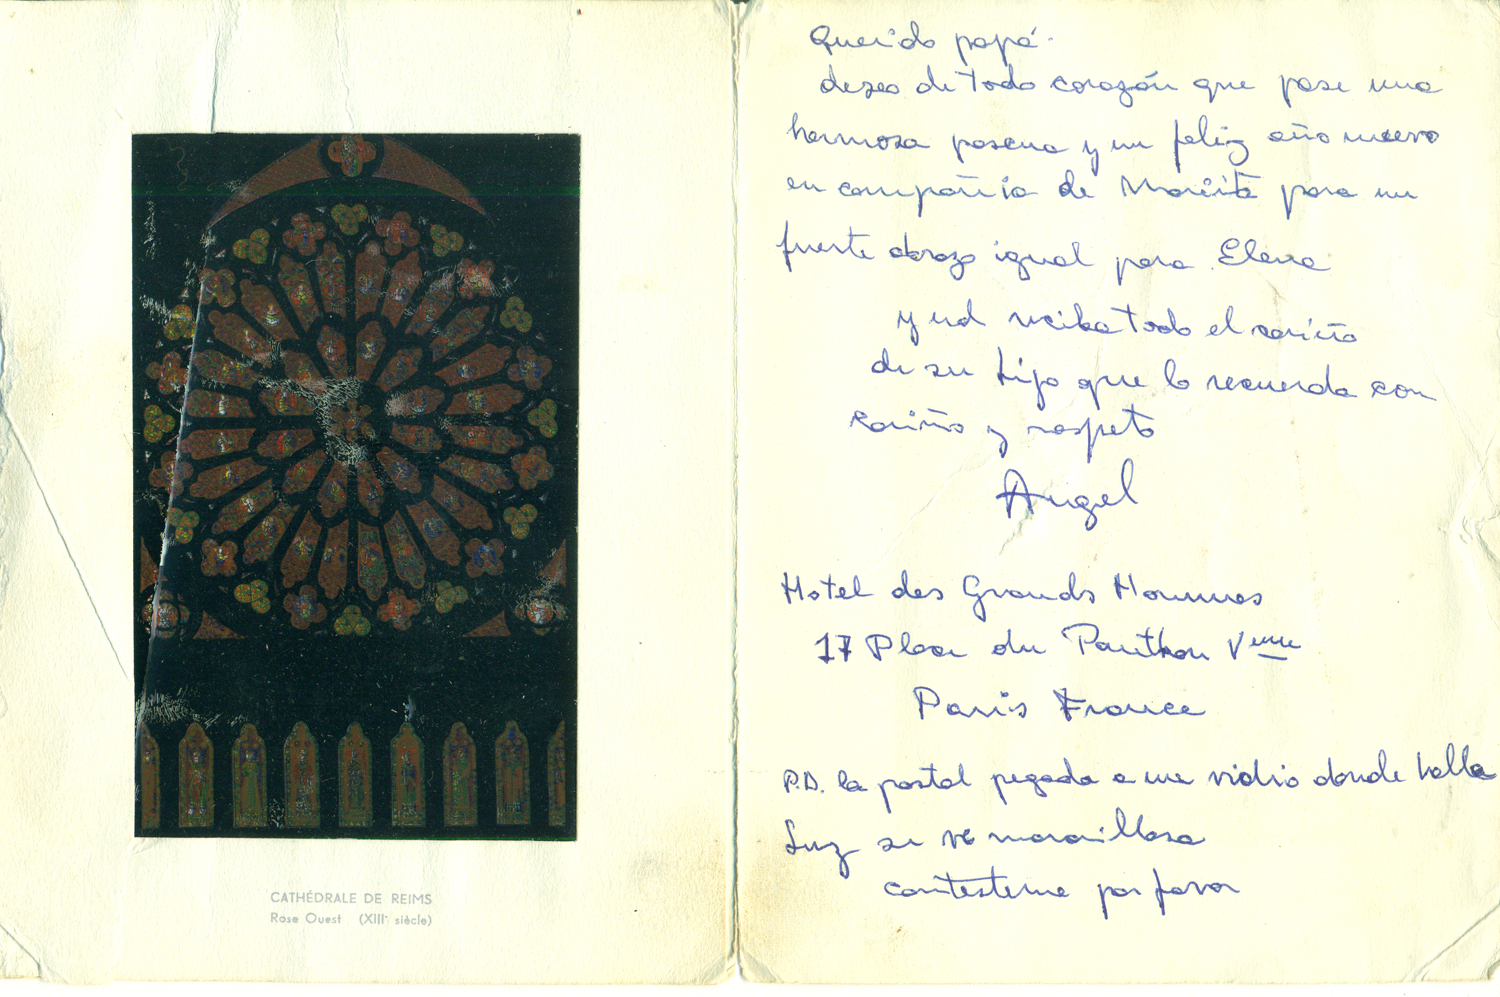 CATHÉDRALE DE REIMS
Rose Ouest (XIIIᵉ siècle)
Querido papá.
deseo de todo corazón que pase una
hermosa pascua y un feliz año nuevo
en compañia de para un
fuerte abrazo igual para Elena
y ud reciba todo el cariño
de su hijo que lo recuerda con
cariño y respeto
Angel
Hotel des Grands Hommes
17 Place du Pantheon Vᵉᵐᵉ
Paris France
P.D. la postal pegada a un vidrio donde halla
Luz se ve maravillosa
contesteme por favor